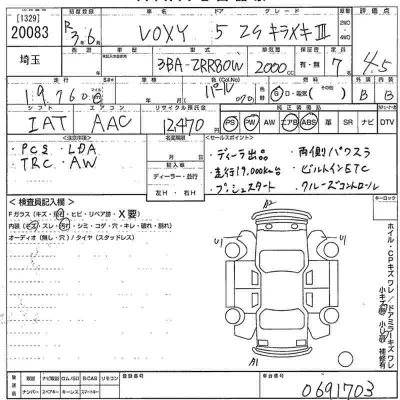 [1329]
20083
初度登録
R 3.6
車名
ドア
グレード
VOXY 5 ZSキラメキⅢ
2WD
4WD
評価点
4.5
埼玉
車歴
型式
3BA-ZRR80W
排気量
2000 cc
有・無
定員
7
走行
19,760
車検
色
パール
070
燃料
G・D・電気( )
外装
B
内装
B
シフト
IAT
エアコン
AAC
リサイクル預託金
12470
純正装備品
PS PW AW エアB ABS 革 SR ナビ DTV
<注意事項>
・PCS ・LDA
・TRC ・AW
名変期限
車両
ディーラー・並行
左H・右H
<セールスポイント>
・ディーラ出品 ・両側パワスラ
・走行19,000km台 ・ビルトインETC
・プッシュスタート ・クルーズコントロール
キーロック
< 検査員記入欄 >
Fガラス (キズ・飛石・ヒビ・リペア跡・X要)
内装 (キズ・スレ・汚れ・シミ・コゲ・穴・キレ・破れ・割れ)
オーディオ (無し・穴) / タイヤ (スタッドレス)
A2
U1
U1
A1
ホイル・CPキズワレ/ドアミラーキズワレ
小キズ 小凹 補修有
後日
取説 ナビ取説 ロム/SD B-CAS リモコン
ナンバー スペアキー キーレス スマートキー
登録番号
車台番号
0691703